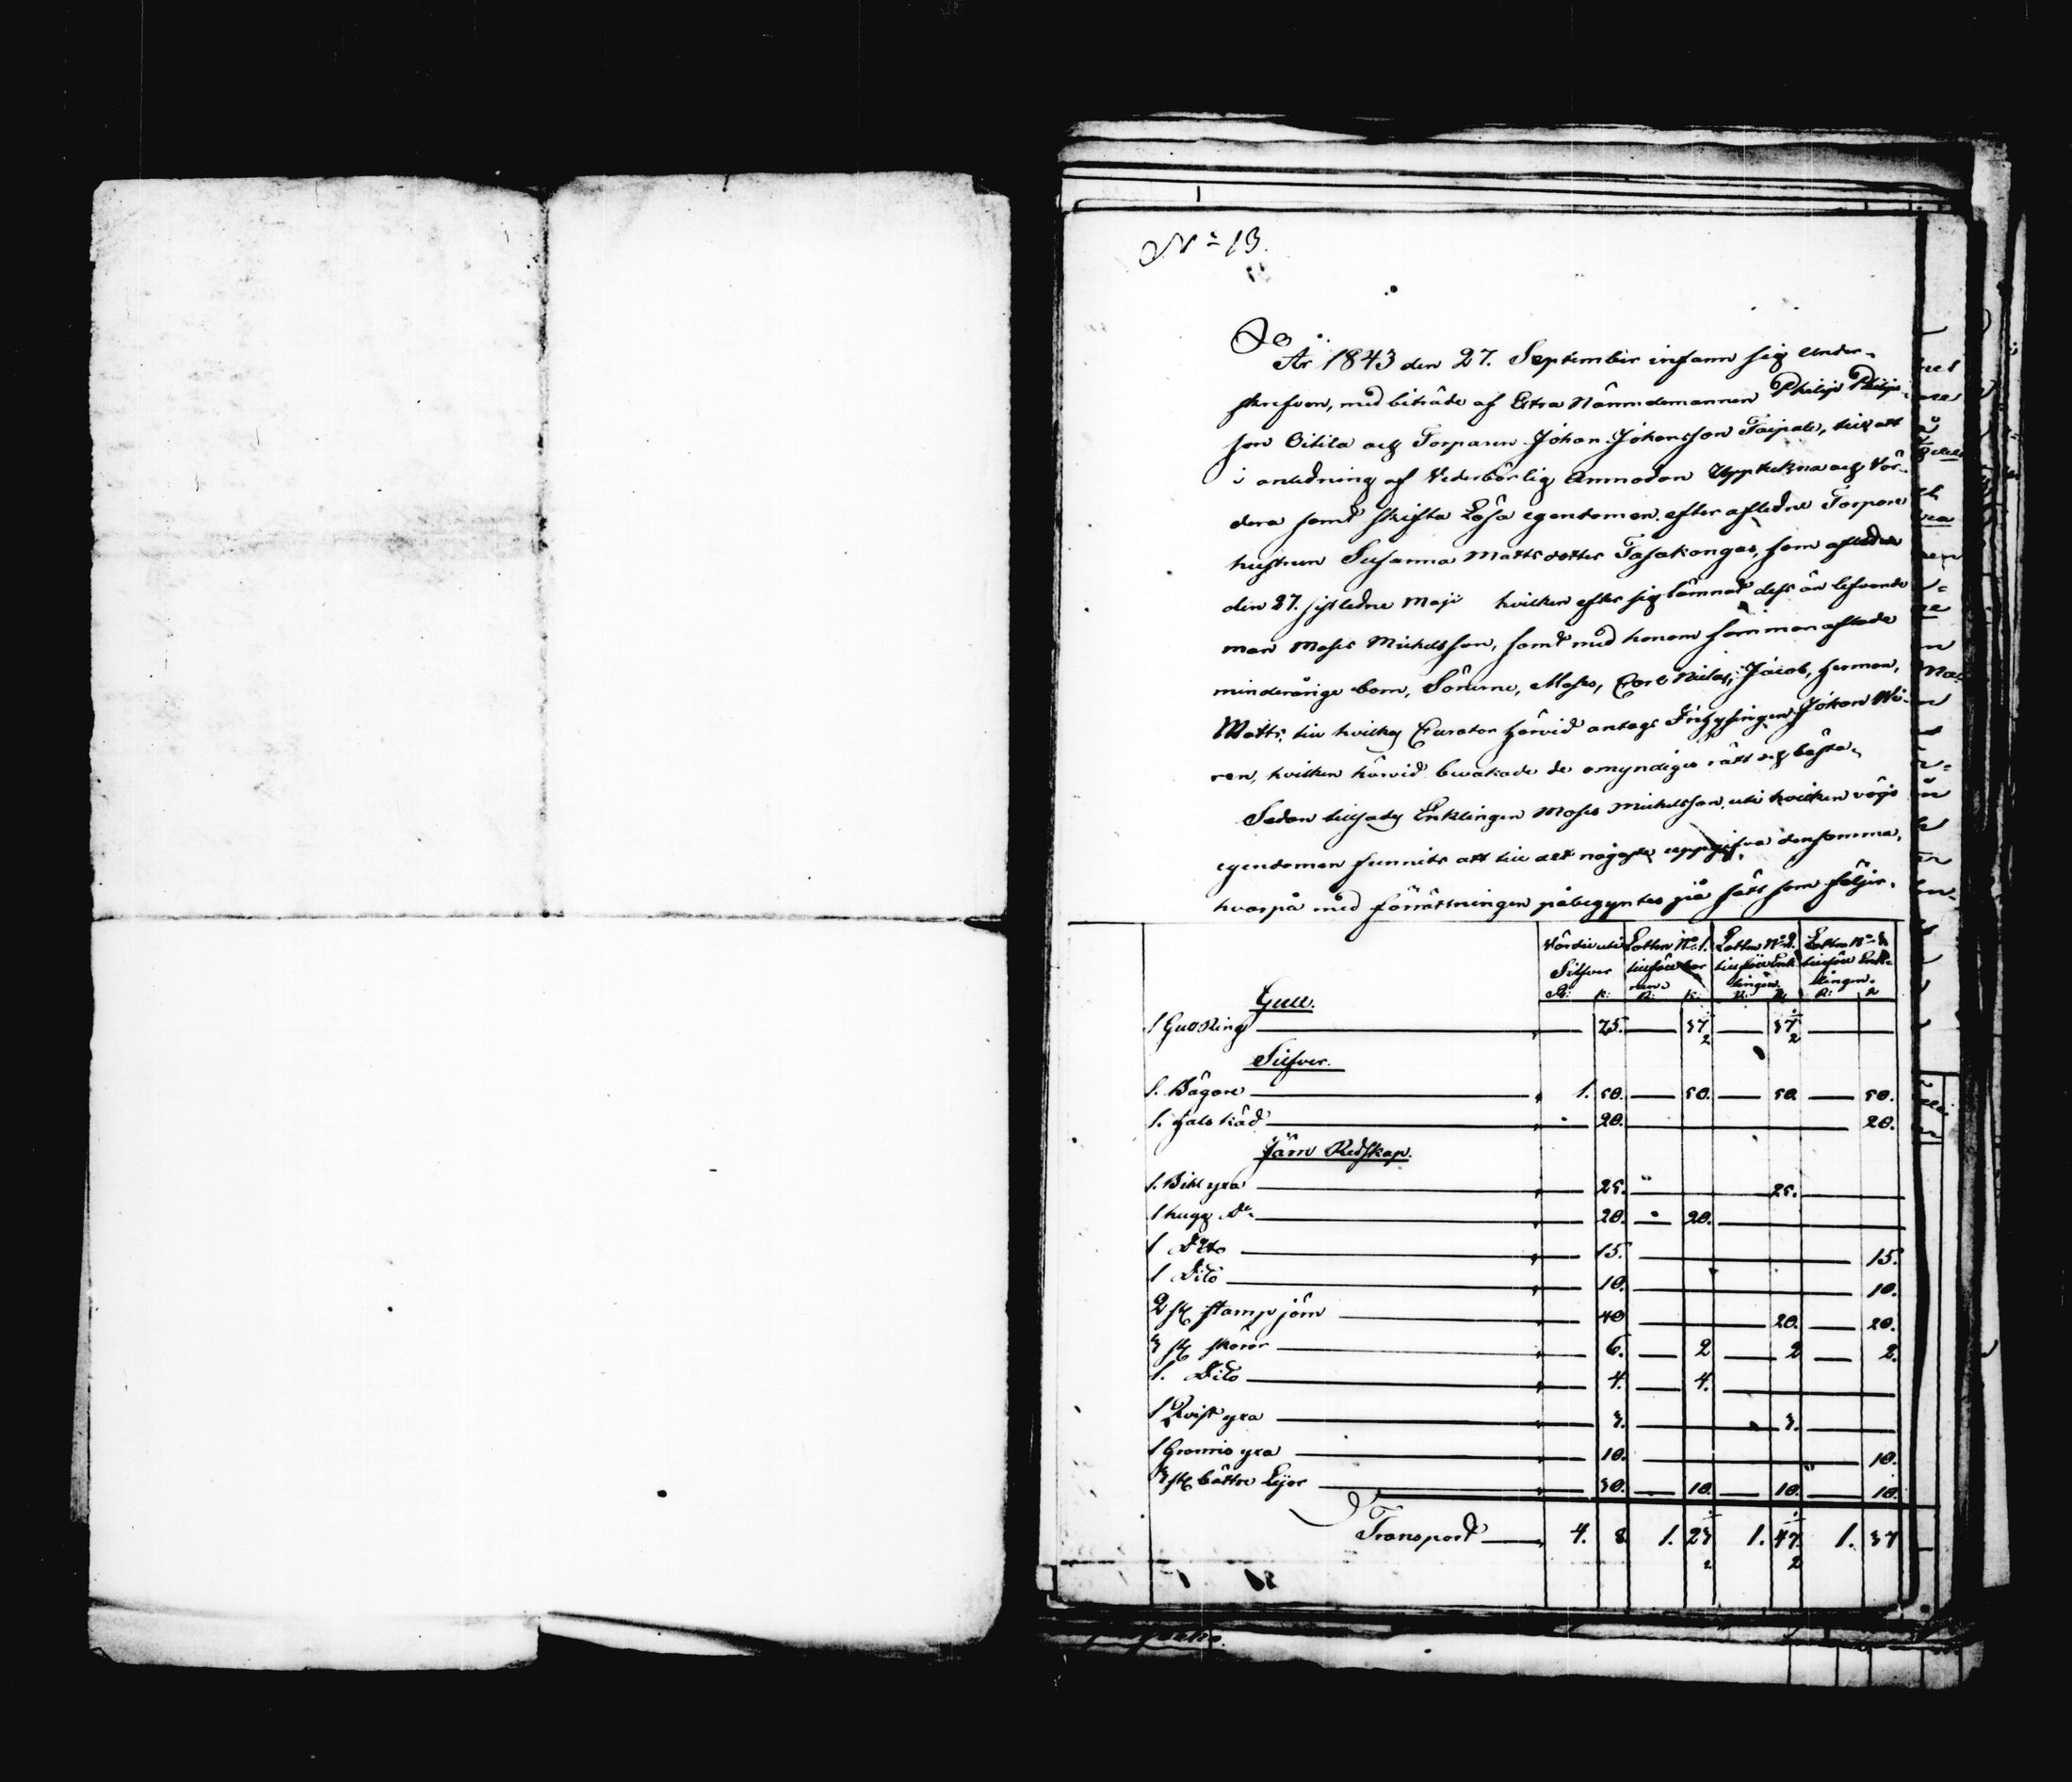 No 13.
År 1843 den 27. September infann sig Under-
skrefven, med biträde af Extra Nämndemannen Philip Philips-
son Oitila och Torparen Johan Johansson Taipale, till att
i anledning af Vederbörlig Anmodan Upptekna och Vär-
dera samt skifta Lösa egendomen efter afledne Torpare
hustrun Susanna Mattsdotter Tasakangas, som afledit
den 27. sistledne Maji hvilken efter sig lämnat dess än lefvande
man Moses Michelsson, samt med honom samman aflade
minderårige barn, Sönerne, Moses, Carl Niclas, Jacob, Herman,
Matts, till hvilkas Curator härvid antogs Inhysingen Johan
ren, hvilken härvid bevakade de omyndiges rätt och bästa.
Sedan tillsades Enklingen Moses Michelsson, uti hvilken vägo
egendomen funnits att till det nogaste uppgifva densamma,
hvarpå med förrättningen påbegyntes på sätt som följer.
Värdie uti Silfver R: K: Lotten No 1. tillföll bar nen R: K: Lotten No 2. tillföll Enk lingen R: K: Lotten No 3 tillföll Enk- lingen. R: K
Gull.
1 Gull Ring 75. 37 1/2 37 1/2
Silfver.
1. Bägare 1. 50. 50. 50 50.
1. Hals käd 20. 20.
Järn Redskap.
1. Bihl yxa 25. 25.
1 hugg Do 20. 20.
1 Dito 15. 15.
1 Dito 10. 10.
2 st stamp järn 40 20. 20.
3 st skäror 6. 2 2 2.
1. Dito 4. 4.
1 Qvist yxa 3. 3.
1 yxa 10. 10.
3 st bättre Lijor 30. 10. 10. 10.
Transport 4. 8 1. 23 1/2 1. 47 1/2 1. 37